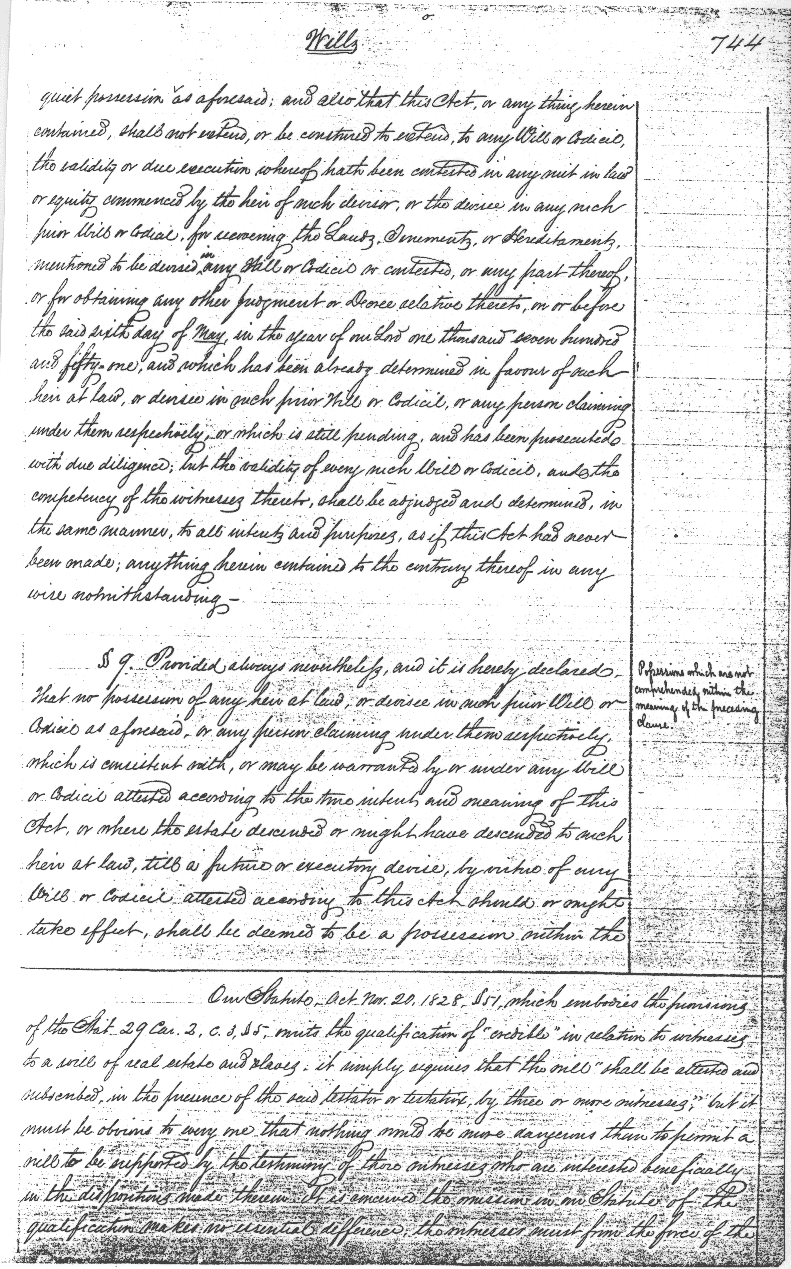 Wills
744
quiet possession as aforesaid; and also that this Act, or any thing herein
contained, shall not extend, or be construed to extend, to any Will or Codicil,
the validity or due execution whereof hath been contested in any suit in law
or equity commenced by the heir of such devisor, or the devisee in any such
prior Will or Codicil, for recovering the Lands, Tenements, or Hereditaments,
mentioned to be devised in any Will or Codicil so contested, or any part thereof,
or for obtaining any other judgment or Decree relative thereto, on or before
the said sixth day of May, in the year of our Lord one thousand seven hundred
and fifty-one, and which has been already determined in favour of such
heir at law, or devisee in such prior Will or Codicil, or any person claiming
under them respectively, or which is still pending, and has been prosecuted
with due diligence; but the validity of every such Will or Codicil, and the
competency of the witnesses thereto, shall be adjudged and determined, in
the same manner, to all intents and purposes, as if this Act had never
been made; anything herein contained to the contrary thereof in any
wise notwithstanding –
§ 9. Provided always nevertheless, and it is hereby declared,
that no possession of any heir at law, or devisee in such prior Will or
Codicil as aforesaid, or any person claiming under them respectively,
which is consistent with, or may be warranted by or under any Will
or Codicil attested according to the true intent and meaning of this
Act, or where the estate descended or might have descended to such
heir at law, till a future or executory devise, by virtue of any
Will or Codicil attested according to this Act should or might
take effect, shall be deemed to be a possession within the
Possessions which are not
comprehended within the
meaning of the preceding
clause.
Our Statute, Act. Nov. 20, 1828, §51, which embodies the provisions
of the Stat. 29 Car. 2, c. 3, §5, omits the qualification of "credible" in relation to witnesses
to a will of real estate and slaves: it simply requires that the will "shall be attested and
subscribed, in the presence of the said testator or testatrix, by three or more witnesses;" but it
must be obvious to every one that nothing could be more dangerous than to permit a
will to be supported by the testimony of those witnesses who are interested beneficially
in the dispositions made therein. It is conceived the omission in our Statute of the
qualification makes no essential difference; the witnesses must from the force of the